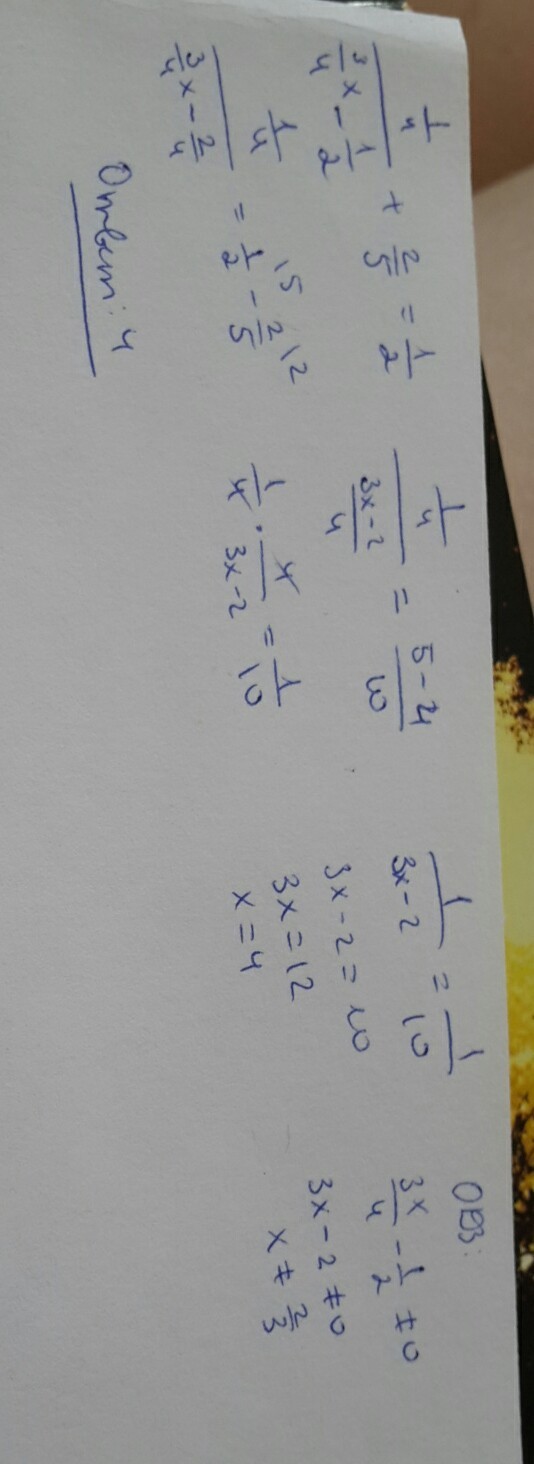 \frac{\frac{1}{4}}{\frac{3}{4}x - \frac{1}{2}} + \frac{2}{5} = \frac{1}{2}
\frac{\frac{1}{4}}{\frac{3}{4}x - \frac{2}{4}} = \frac{1}{2}^{\backslash 5} - \frac{2}{5}^{\backslash 2}
\frac{\frac{1}{4}}{\frac{3x-2}{4}} = \frac{5-4}{10}
\frac{1}{4} \cdot \frac{4}{3x-2} = \frac{1}{10}
\frac{1}{3x-2} = \frac{1}{10}
3x - 2 = 10
3x = 12
x = 4
ОДЗ:
\frac{3x}{4} - \frac{1}{2} ≠ 0
3x - 2 ≠ 0
x ≠ \frac{2}{3}
Ответ: 4